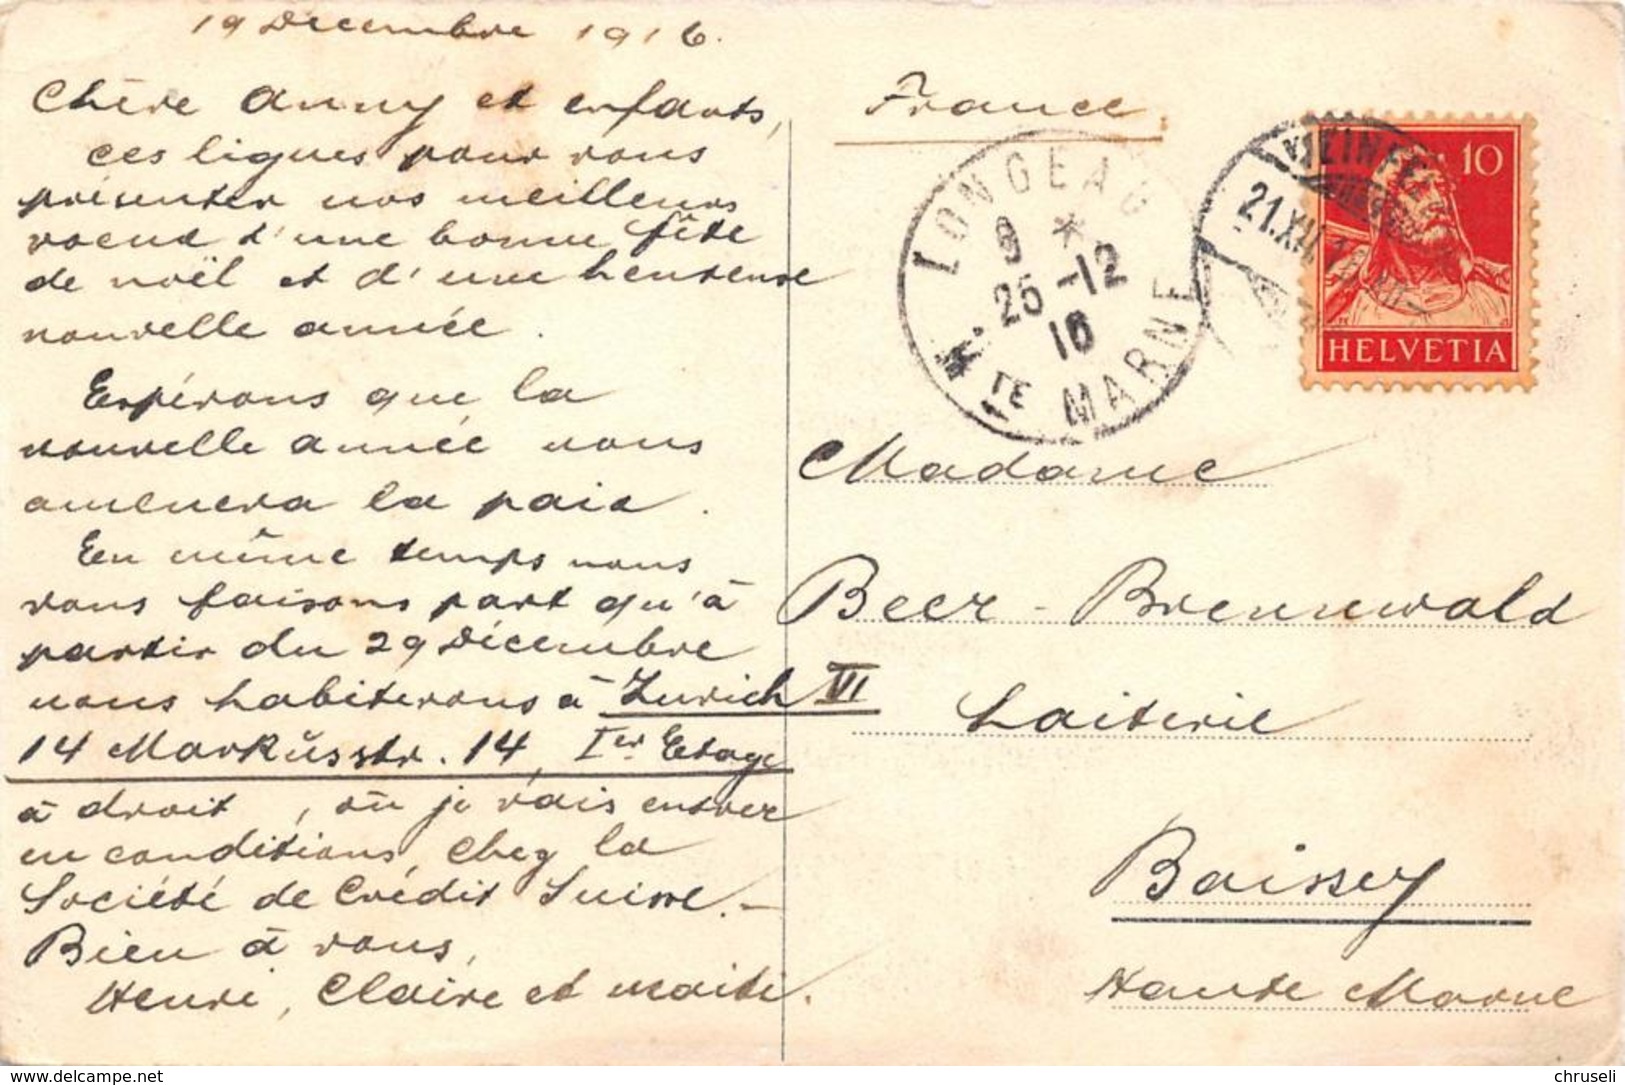 19 Décembre 1916.
Chère Anny et enfants,
ces lignes pour vous
présenter nos meilleurs
voeux d'une bonne fête
de noël et d'une heureuse
nouvelle année.
Espérons que la
nouvelle année vous
amenera la paix.
En même temps nous
vous faisons part qu'à
partir du 29 Décembre
nous habiterons à Zurich VI
14 Markusstr. 14, Ier Etage
à droit, où je vais entrer
en conditions, chez la
Société de Crédit Suisse.-
Bien à vous,
Henri, Claire et
France
LONGEAU
* 
25 -12
16
HTE MARNE
21.XII.16
10
HELVETIA
Madame
Beer-Brennwald
Laiterie
Baissey
Haute Marne
www.delcampe.net
chruseli